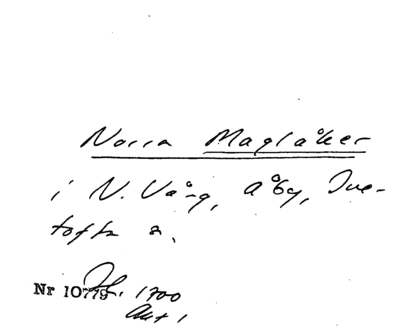 Norra Maglaåker
i N. Vång, Åby, Ive-
tofta s.
Nr 10779. 1700
Akt 1